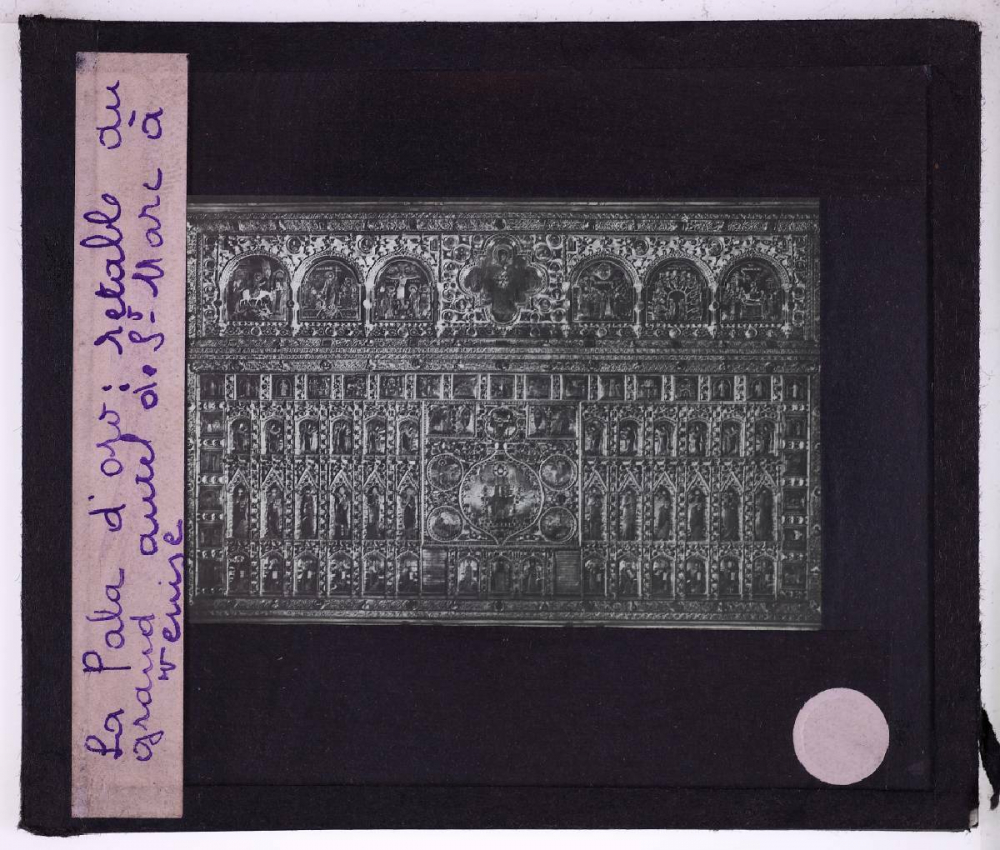 La Pala d'oro : retable du
grand autel de St-Marc à
Venise